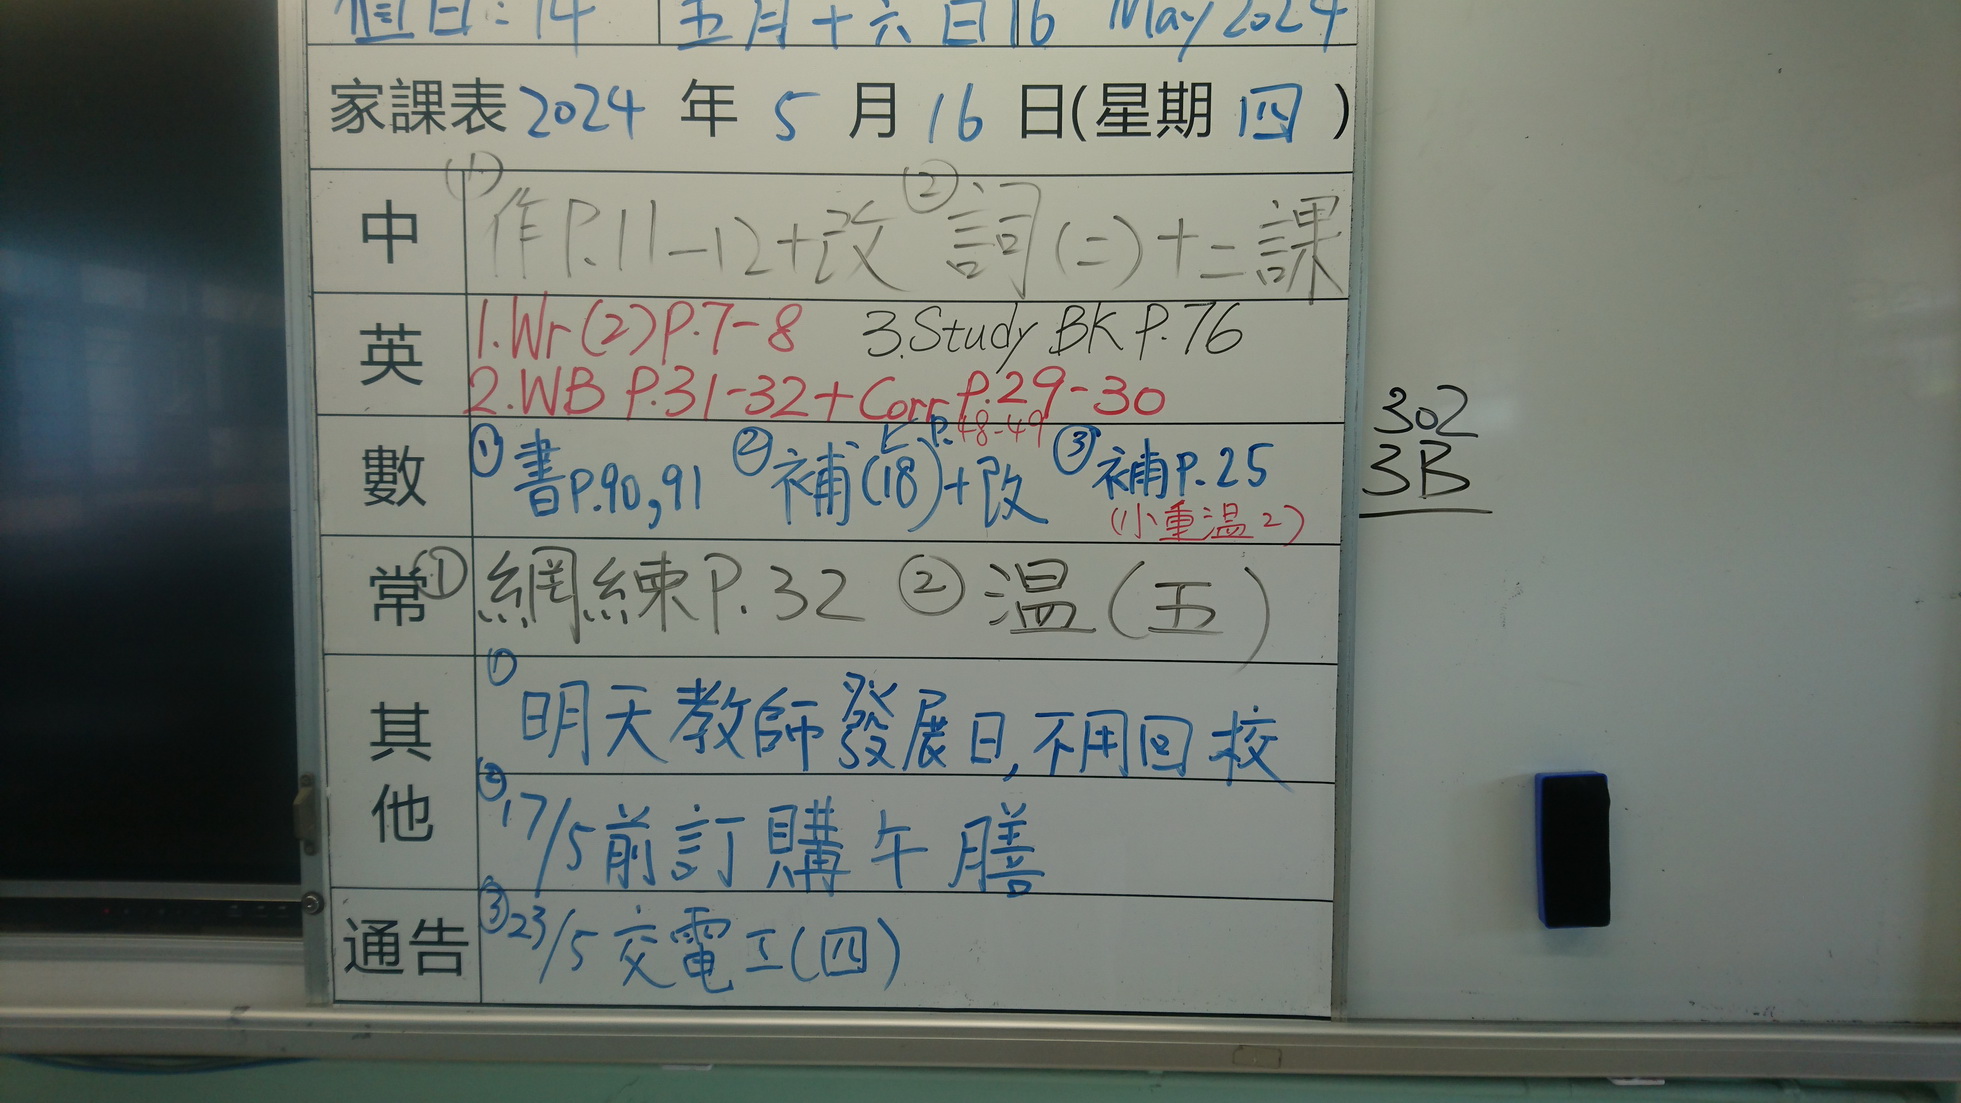 值日:14 五月十六日 16 May 2024
家課表 2024 年 5 月 16 日(星期 四 )
中 (1) 作P.11-12+改 ② 詞(二)十二課
英 1.Wr(2)P.7-8 3.Study BK P.76
2.WB P.31-32+Corr P.29-30
P.48-49
數 ① 書P.90,91 ② 補(18)+改 ③ 補P.25
(小重溫2)
常 ① 網練P.32 ② 溫(五)
其他 ① 明天教師發展日,不用回校
② 17/5前訂購午膳
通告 ③ 23/5交電工(四)
302
3B